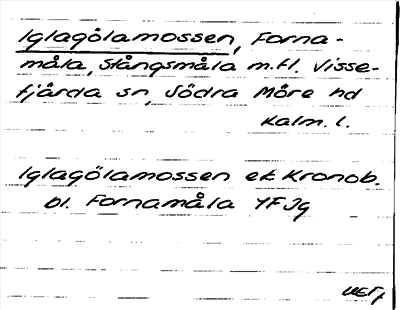 Iglagölamossen, Forna-
måla, Stångsmåla m.fl. Visse-
fjärda sn, Södra Möre hd
Kalm. l.
Iglagölamossen ek. Kronob.
bl. Fornamåla 4F Jg